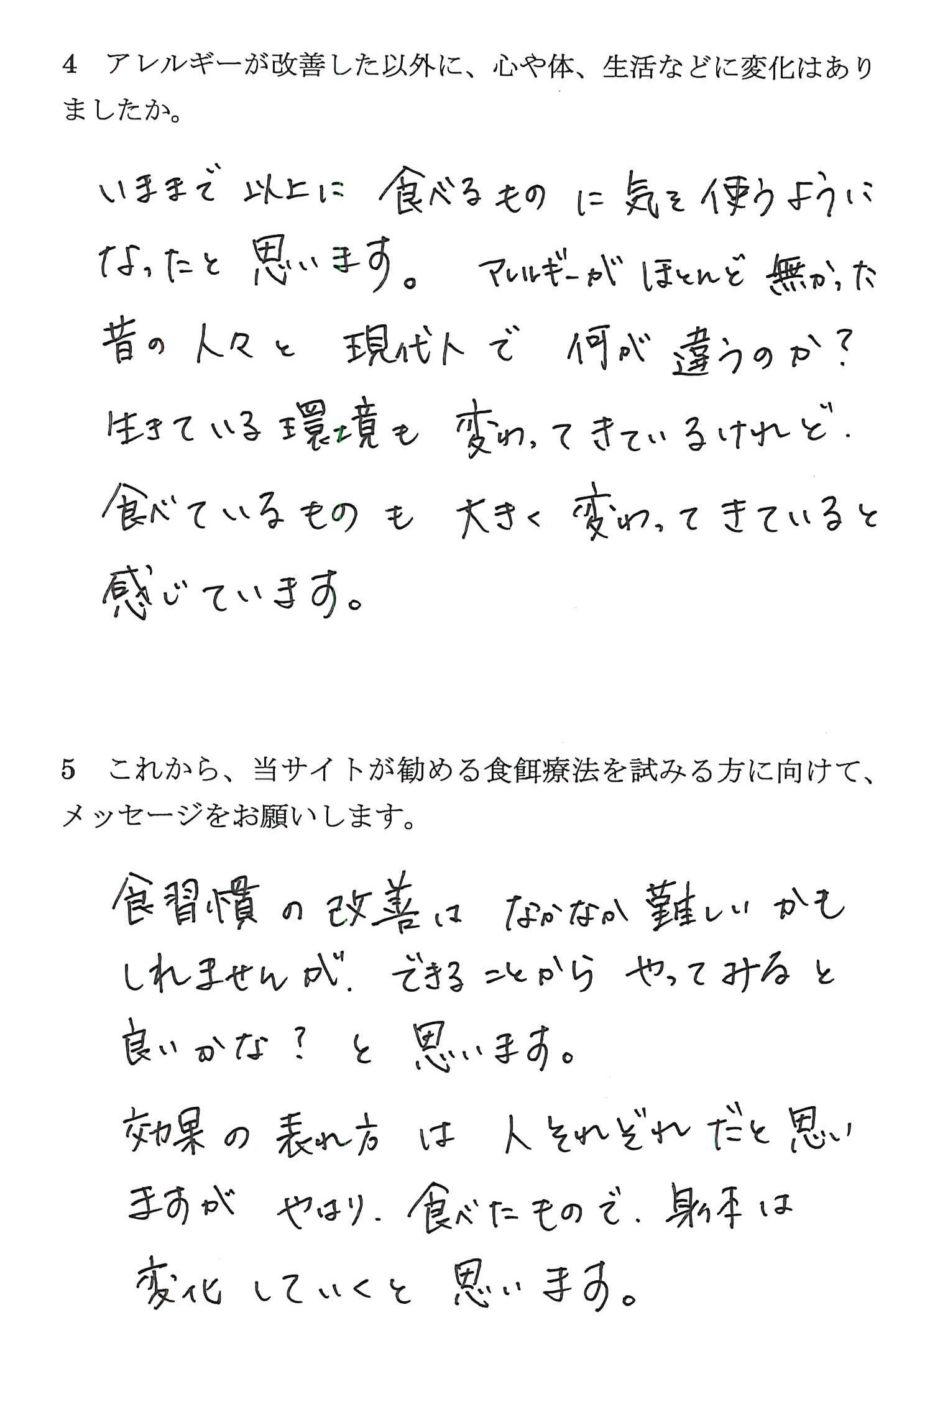 4 アレルギーが改善した以外に、心や体、生活などに変化はあり
ましたか。
いままで以上に食べるものに気を使うように
なったと思います。アレルギーがほとんど無かった
昔の人々と現代人で何が違うのか？
生きている環境も変わってきているけれど、
食べているものも大きく変わってきていると
感じています。
5 これから、当サイトが勧める食餌療法を試みる方に向けて、
メッセージをお願いします。
食習慣の改善はなかなか難しいかも
しれませんが、できることからやってみると
良いかな？と思います。
効果の表れ方は人それぞれだと思い
ますがやはり、食べたもので、身体は
変化していくと思います。